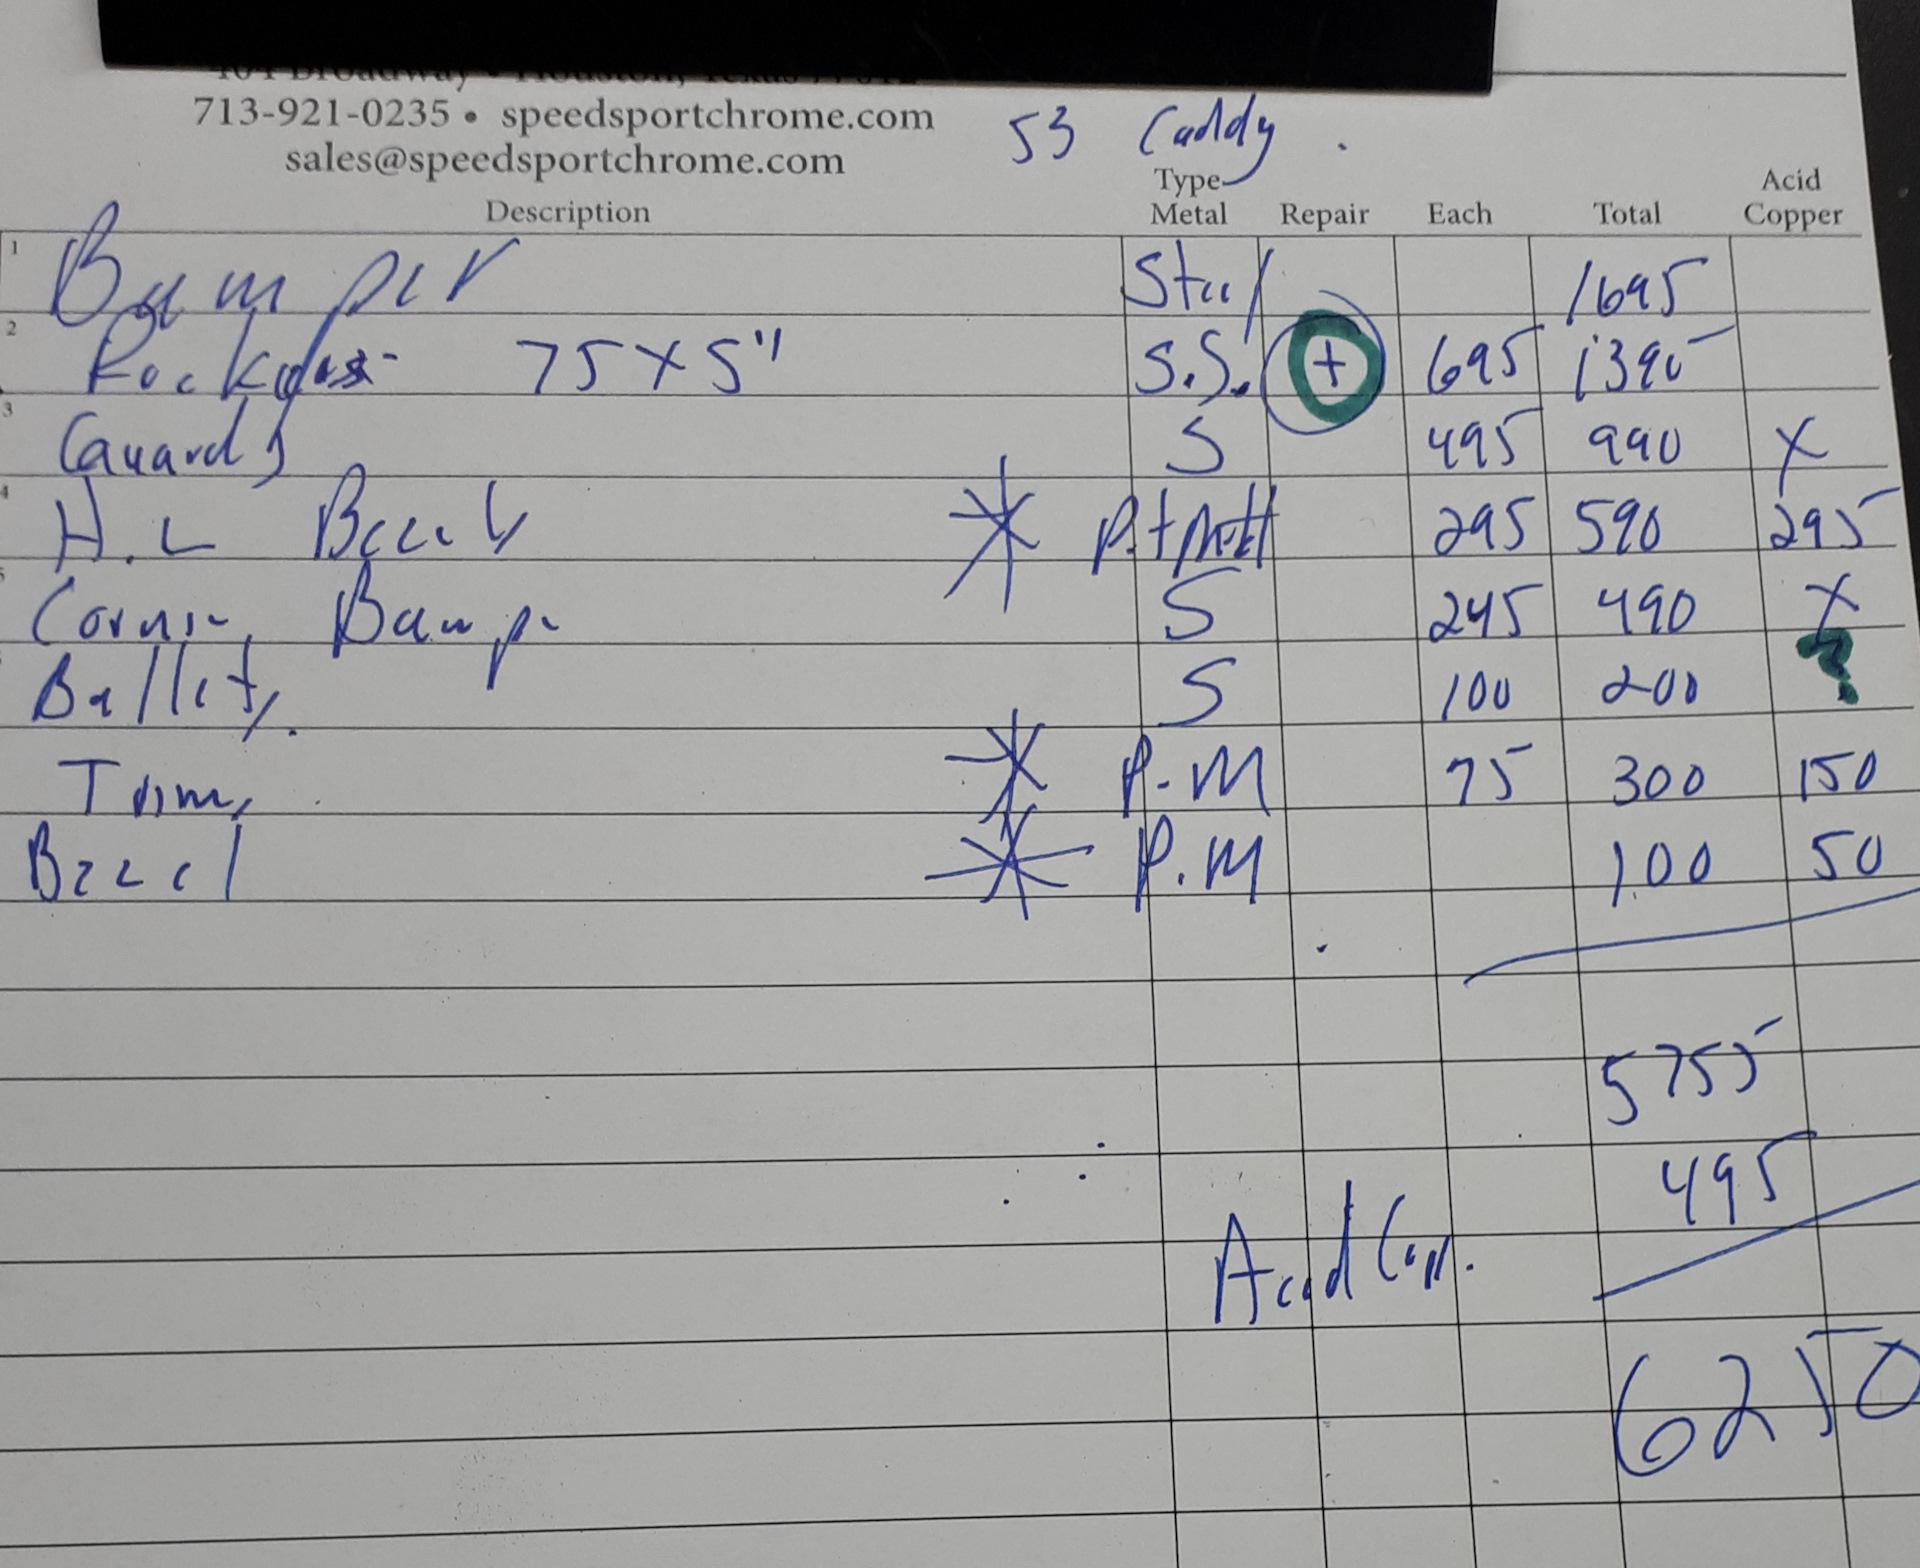 713-921-0235 • speedsportchrome.com
sales@speedsportchrome.com
53 Caddy
Description Type Metal Repair Each Total Acid Copper
1 Bumper Steel 1695
2 75 X 5" S.S. + 695 1395
3 Guards S 495 990 X
4 H.L Bezels P.+Metl 295 590 295
5 Corner Bump S 245 490 X
Bullets S 100 200 ?
Trim P.M 75 300 150
Bezel P.M 100 50
5755
495
Acid Cop.
6250